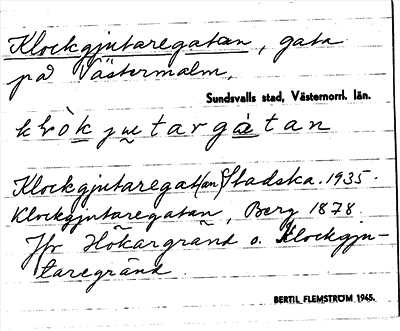 Klockgjutaregatan, gata
på Västermalm,
Sundsvalls stad, Västernorrl. län.
klòkjutargatan
Klockgjutaregat(an) Stadska. 1935.
Klockgjutaregatan, Berg 1878
Jfr Hökargränd o. Klockgju-
taregränd.
BERTIL FLEMSTRÖM 1945.